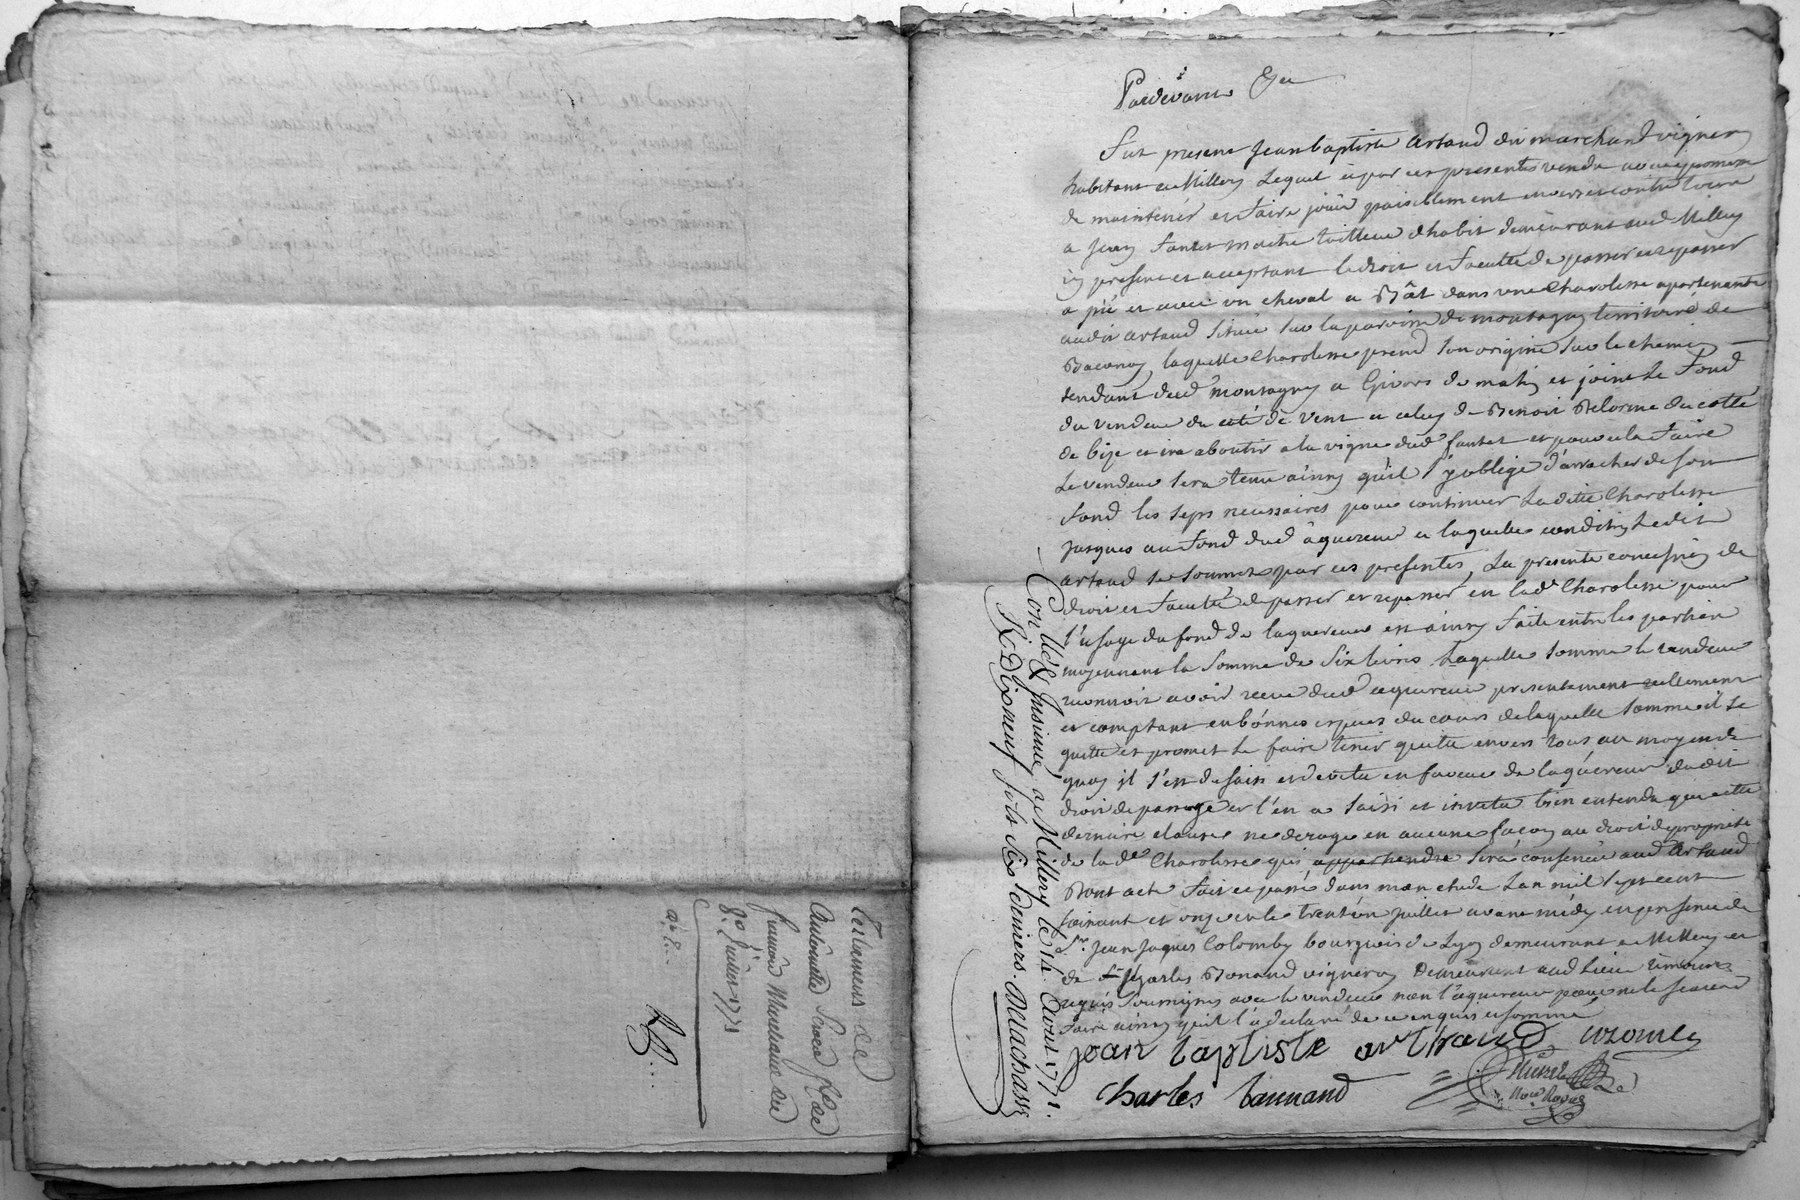 Testament de
Antoinette
françois
8e Juillet 1771
Pardevant &ca
Fut présent Jean baptiste artaud dit marchand vigneron
habitant a Millery Lequel a par ces presentes vendu avec promesse
de maintenir et faire joüir paisiblement envers et contre tous
a Jean fantet maitre tailleur d'habit demeurant aud Millery
icy present et acceptant le droit et faculté de passer et repasser
a pié et avec un cheval a Bât dans une Charolesse apartenante
audit artaud située sur la paroisse de montagny territoire de
laquelle Charolesse prend son origine sur le chemin
tendant dud montagny a Givors de matin et joint le fond
du vendeur du coté de vent et celuy de Benoit Delorme du cotte
de bize et ira aboutir a la vigne dud fantet et pour cela faire
Le vendeur sera tenu ainsy qu'il s'y obblige d'arracher de son
fond les seps necessaires pour continuer Ladite Charolesse
jusques au fond dud aquereur a laquelle condition Ledit
artaud se soumet par ces presentes, La presente concession de
droit et faculté de passer et repasser en lade Charolesse pour
l'usage du fond de laquereur est ainsy faite entre les parties
moyennant la somme de Six livres Laquelle somme le vendeur
reconnoit avoir receu dud aquereur presentement reellement
et comptant en bonnes especes du cours de laquelle somme il le
quitte et promet le faire tenir quitte envers tous au moyen de
quoy il s'est desaisi et devetu en faveur de laquereur dudit
droit de passage et l'en a saisi et investu bien entendu que cette
derniere clause ne deroge en aucune façon au droit de proprieté
de lade Charolesse qui sera conservée aud Artaud
Dont acte fait et passé dans mon etude Lan mil sept cent
soixante et onze et le trente juillet avant midy en presence de
Sr Jean Jaques Colomby bourgeois de Lyon demeurant a Millery et
de Sr Charles Bonand vigneron Demeurant aud Lieu temoins
requis soussignes avec le vendeur non l'aquereur pour ne le scavoir
faire ainsy qu'il l'a declaré de ce enquis et sommé
jean baptiste arthaud colomby
charles bannand
Not. Royal
Conllé & Insinué a Millery le 14 Aoust 1771.
R. Dixneuf sols Six deniers. Delachasse